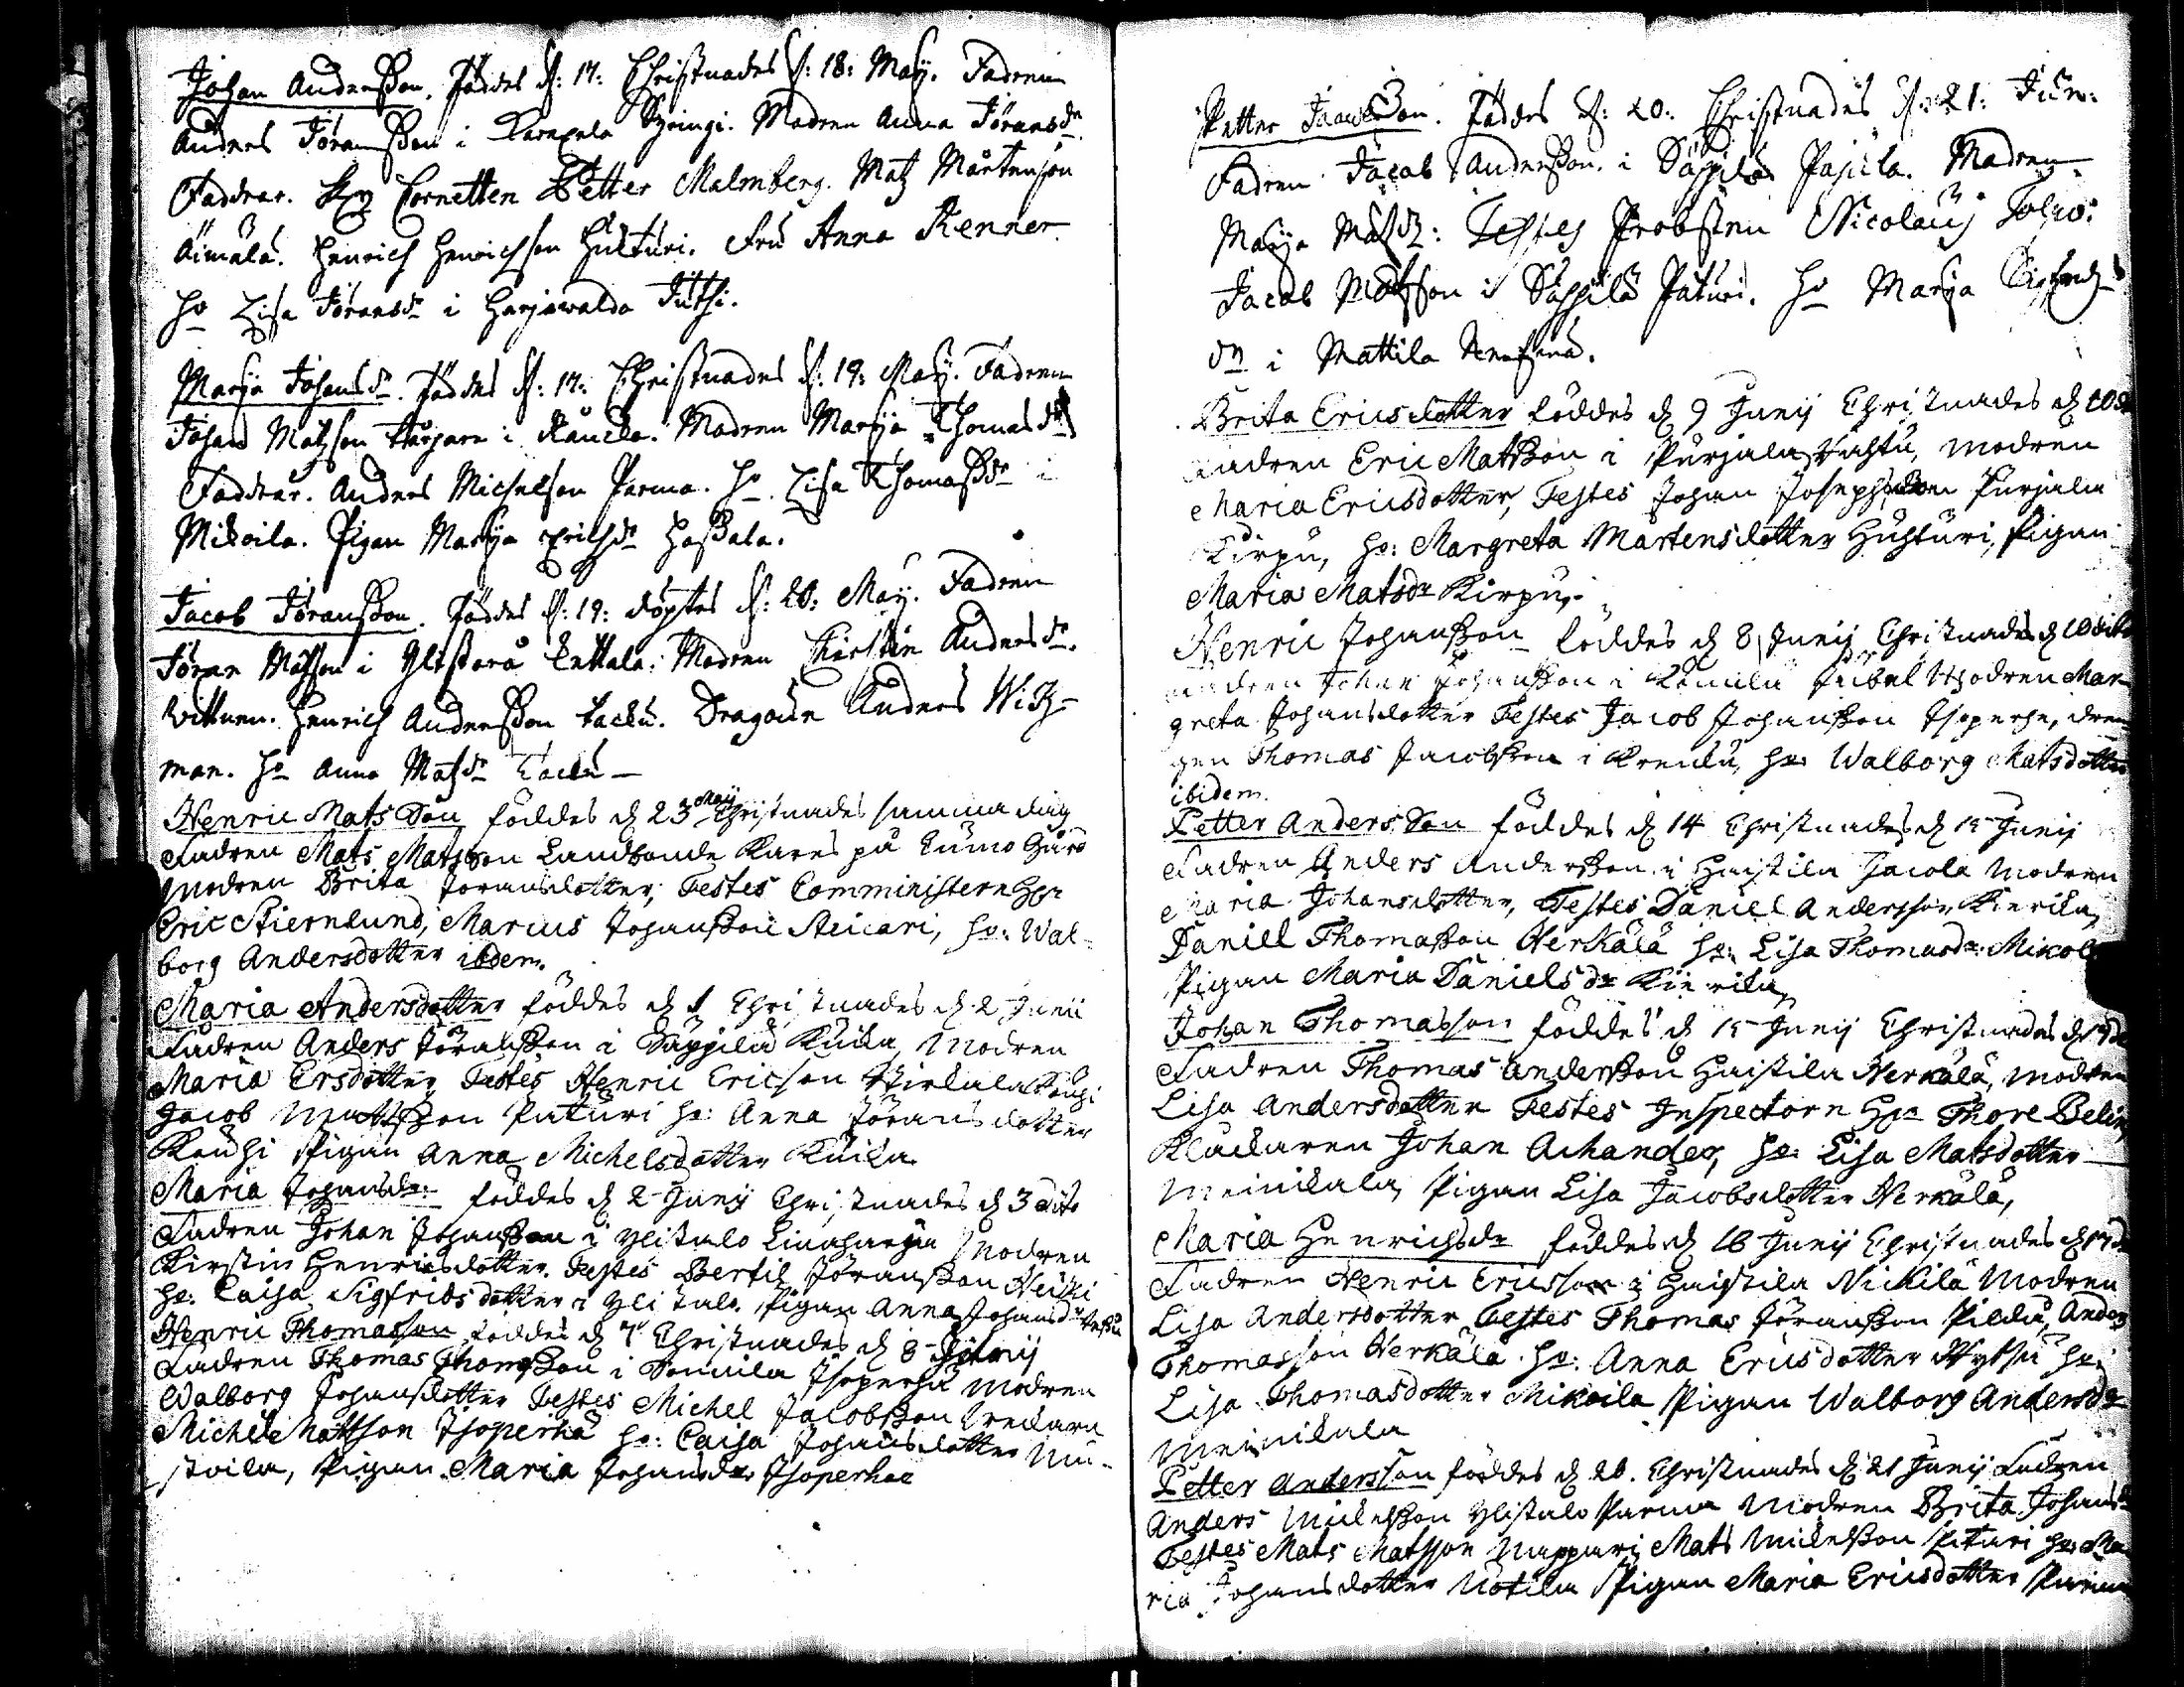 Johan Andersson. föddes d: 17: Christnades d: 18: Maij. Fadren
Anders Jöransson i Karhela Springi. Modren Anna Jöransdr
Faddrar. Hr Cornetten Petter Malmberg. Matz Mårtenson
Äimälä. Henrich Henrichson Hulturi. Fru Anna Renner
ho Lisa Jöransdr i Harjawalda Juthi.
Marja Johansdr. föddes d: 17: Christnades d: 19: Maij. Fadren
Johan Matzson torpare i Raucko. Modren Marja Thomasdr
Faddrar. Anders Michelson Parma. ho. Lisa Thomassdr i
Mikoila. Pigan Marja Erichsdr Hassala.
Jacob Jöransson. föddes d: 19: döptes d: 20: Maij. Fadren
Jöran Matsson i Ylistaro Enttala. Modren Chirstin Andersdr.
Vittnen. Henrich Andersson Tacku. Dragoun Anders Wid-
man. ho Anna Matsdr Tacku
Henric Matsson föddes d 23 Maij Christnades samma dag
Fadren Mats Matsson Landbonde Kares på Cumo Gård
Modren Brita Joransdotter, Testes Comministern Hr
Eric Stiernlund, Marcus Johansson Steicari, ho: Wal-
borg Andersdotter ibdem.
Maria Andersdotter föddes d 1 Christnades d 2 Junii
Fadren Anders Jöransson i Säppilä Kuika, Modren
Maria Ersdotter Testes Henric Ericson Pirkala Knuhi
Jacob Mattsson Paturi ho: Anna Joransdotter
Knuhi Pigan Anna Michelsdotter Kuika
Maria Johansdr: föddes d 2 Junij Christnades d 3 dito
Fadren Johan Johansson i Ylistalo Linnharja Modren
Kirstin Henricsdotter. Testes Bertil Jöransson Heicki
ho: Caisa Sigfridsdotter i Ylistalo Pigan Anna Johansdr
Henric Thomasson föddes d 7 Christnades d 8 Junij
Fadren Thomas Thomsson i Sonnila Isoperha Modren
Walborg Johansdotter Testes Michel Jacobsson Krekara
Michel Mattson Isoperhä ho: Caisa Johansdotter Mu-
stoila, Pigan Maria Johansdr Isoperhae
Petter Jacobsson. föddes d: 20: Christnades d: 21: Jun:
Fadren Jacob Andersson. i Säppilä Pajula. Modren
Marja Matsdr: Testes Probsten Nicolaus Polvi:
Jacob Matsson i Säppilä Paturi. ho Marja Sigfreds
dr i Mattila
Brita Ericsdotter föddes d 9 Junij Christnades d 10 dito
Fadren Eric Matsson i Purjala Vahtu, modren
Maria Ericsdotter, Testes Johan Josephsson Purjala
Kirpu, ho: Margreta Mårtensdotter Huhturi, Pigan
Maria Matsdr Kirpu.
Henric Johansson föddes d 8 Junij Christnades d 10 dito
Fadren Johan Johansson i Sonnila Jubel Modren Mar
greta Johansdotter Testes Jacob Johansson Isoperhe, dren
gen Thomas Jacobsson i Krenku, ho: Walborg Matsdotter
ibidem.
Petter Andersson föddes d 14 Christnades d 15 Junij
Fadren Anders Andersson i Haistila Jacola Modren
Maria Johansdotter, Testes Daniel Andersson Kierika,
Daniell Thomasson Herkälä ho: Lisa Thomasdr Mikol
Pigan Maria Danielsdr Kierika
Johan Thomasson föddes d 15 Junij Christnades d 17 d
Fadren Thomas Andersson Haistila Herkälä, Modren
Lisa Andersdotter Testes Inspectorn Hr Thore Belin,
Klockaren Johan Achander, ho: Lisa Matsdotter
Meinikala, Pigan Lisa Jacobsdotter Herkälä,
Maria Henrichsdr föddes d 16 Junij Christnades d 17 d
Fadren Henric Ericsson i Haistila Nickilä Modren
Lisa Andersdotter Testes Thomas Jöransson Pildu, Anders
Thomasson Herkälä. ho: Anna Ericsdotter Pytsy ho:
Lisa Thomasdotter Mikoila Pigan Walborg Andersdr
Meinikala
Petter Andersson föddes d 20. Christnades d 21 Junij Fadren
Anders Mickelsson Ylistalo Parma Modren Brita Johansdr
Testes Mats Matsson Nappari Mats Mickelsson Paturi ho: Ma
ria Johansdotter Uotila Pigan Maria Ericsdotter Parma